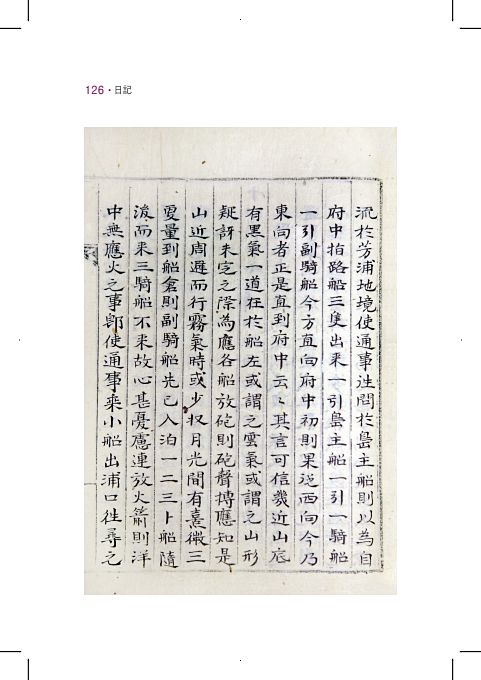 126 · 日記
流於芳浦地境使通事往問於島主船則以為自
府中指路船三隻出來一引島主船一引一騎船
一引副騎船今方直向府中初則果迤西向今乃
東向者正是直到府中云〻其言可信幾近山底
有黑氣一道在於船左或謂之雲氣或謂之山形
疑訝未定之際為應各船放砲則砲聲搏應知是
山近周避而行霧氣時或少收月光間有熹微三
更量到船倉則副騎船先已入泊一二三卜船隨
後而來三騎船不來故心甚憂慮連放火箭則洋
中無應火之事即使通事乘小船出浦口往尋之